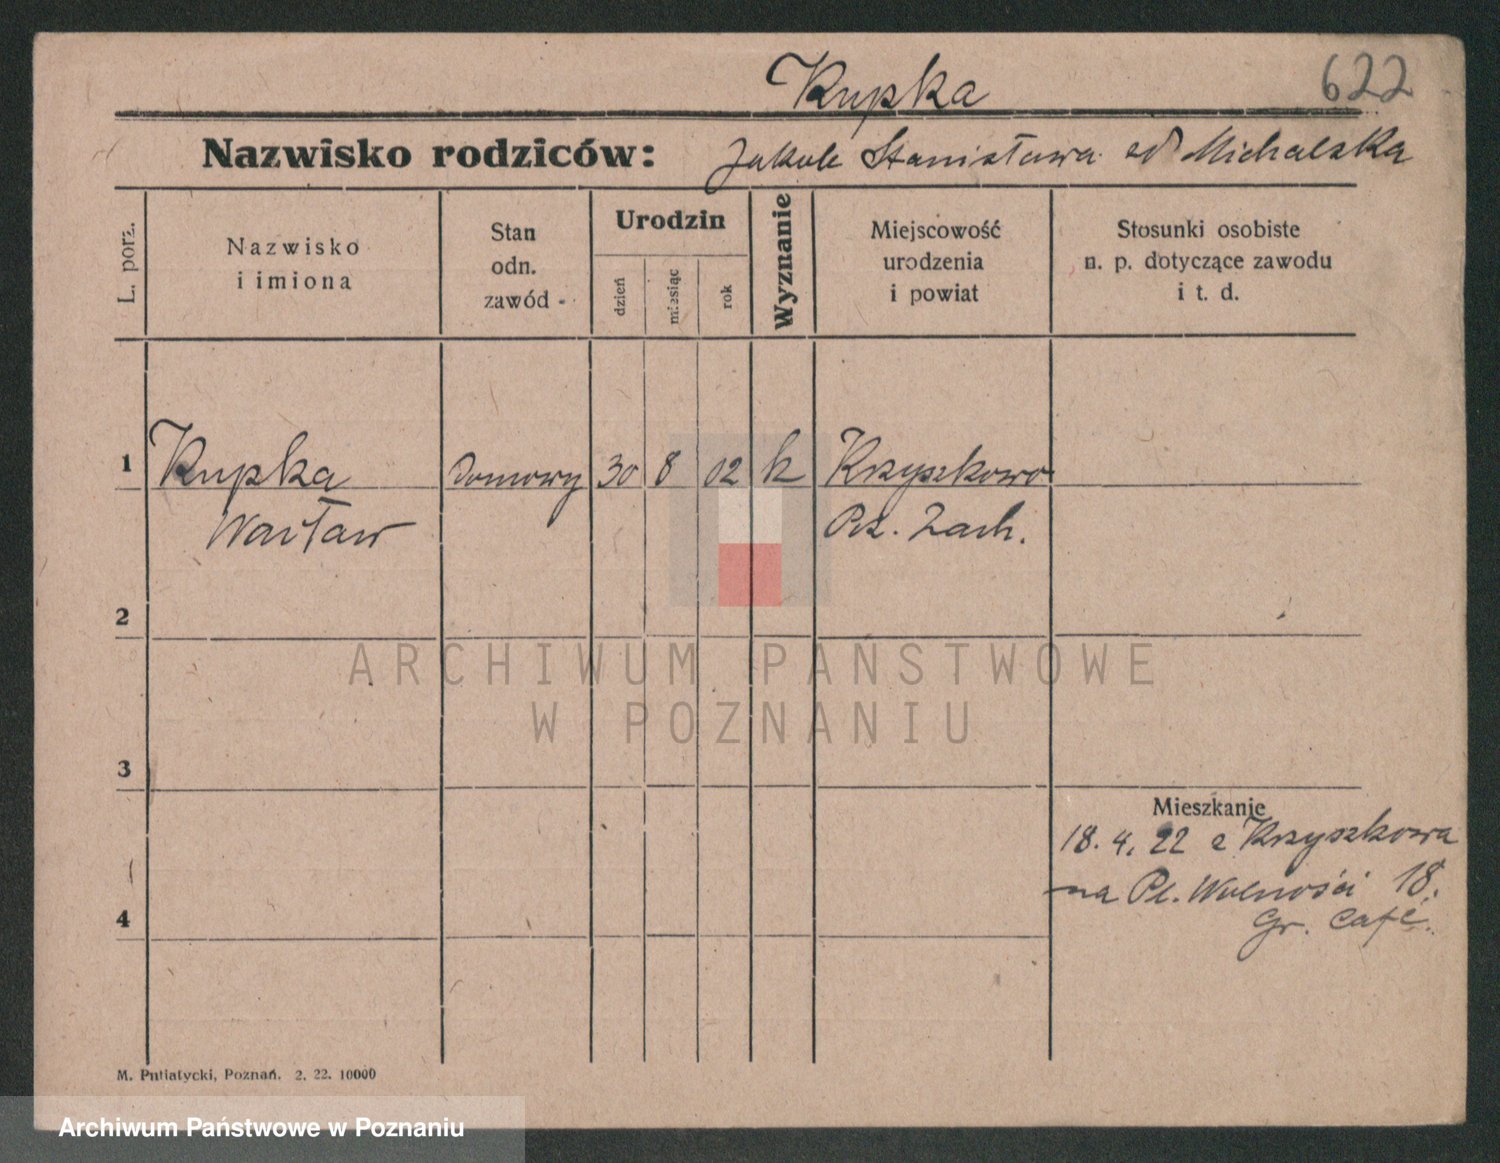 Kupka
622
Nazwisko rodziców: Jakub Stanisława Michalska
L. porz.
Nazwisko
i imiona
Stan
odn.
zawód
Urodzin
dzień
miesiąc
rok
Wyznanie
Miejscowość
urodzenia
i powiat
Stosunki osobiste
n. p. dotyczące zawodu
i t. d.
1 Kupka Domowy 30 8 02 k Krzyszkowo
Wacław Pz. Zach.
2
3
Mieszkanie
18. 4. 22 z Krzyszkowa
na Pl. Wolności 18.
4
Gr. Café.
M. Putiatycki, Poznań. 2. 22. 10000
ARCHIWUM PAŃSTWOWE
W POZNANIU
Archiwum Państwowe w Poznaniu